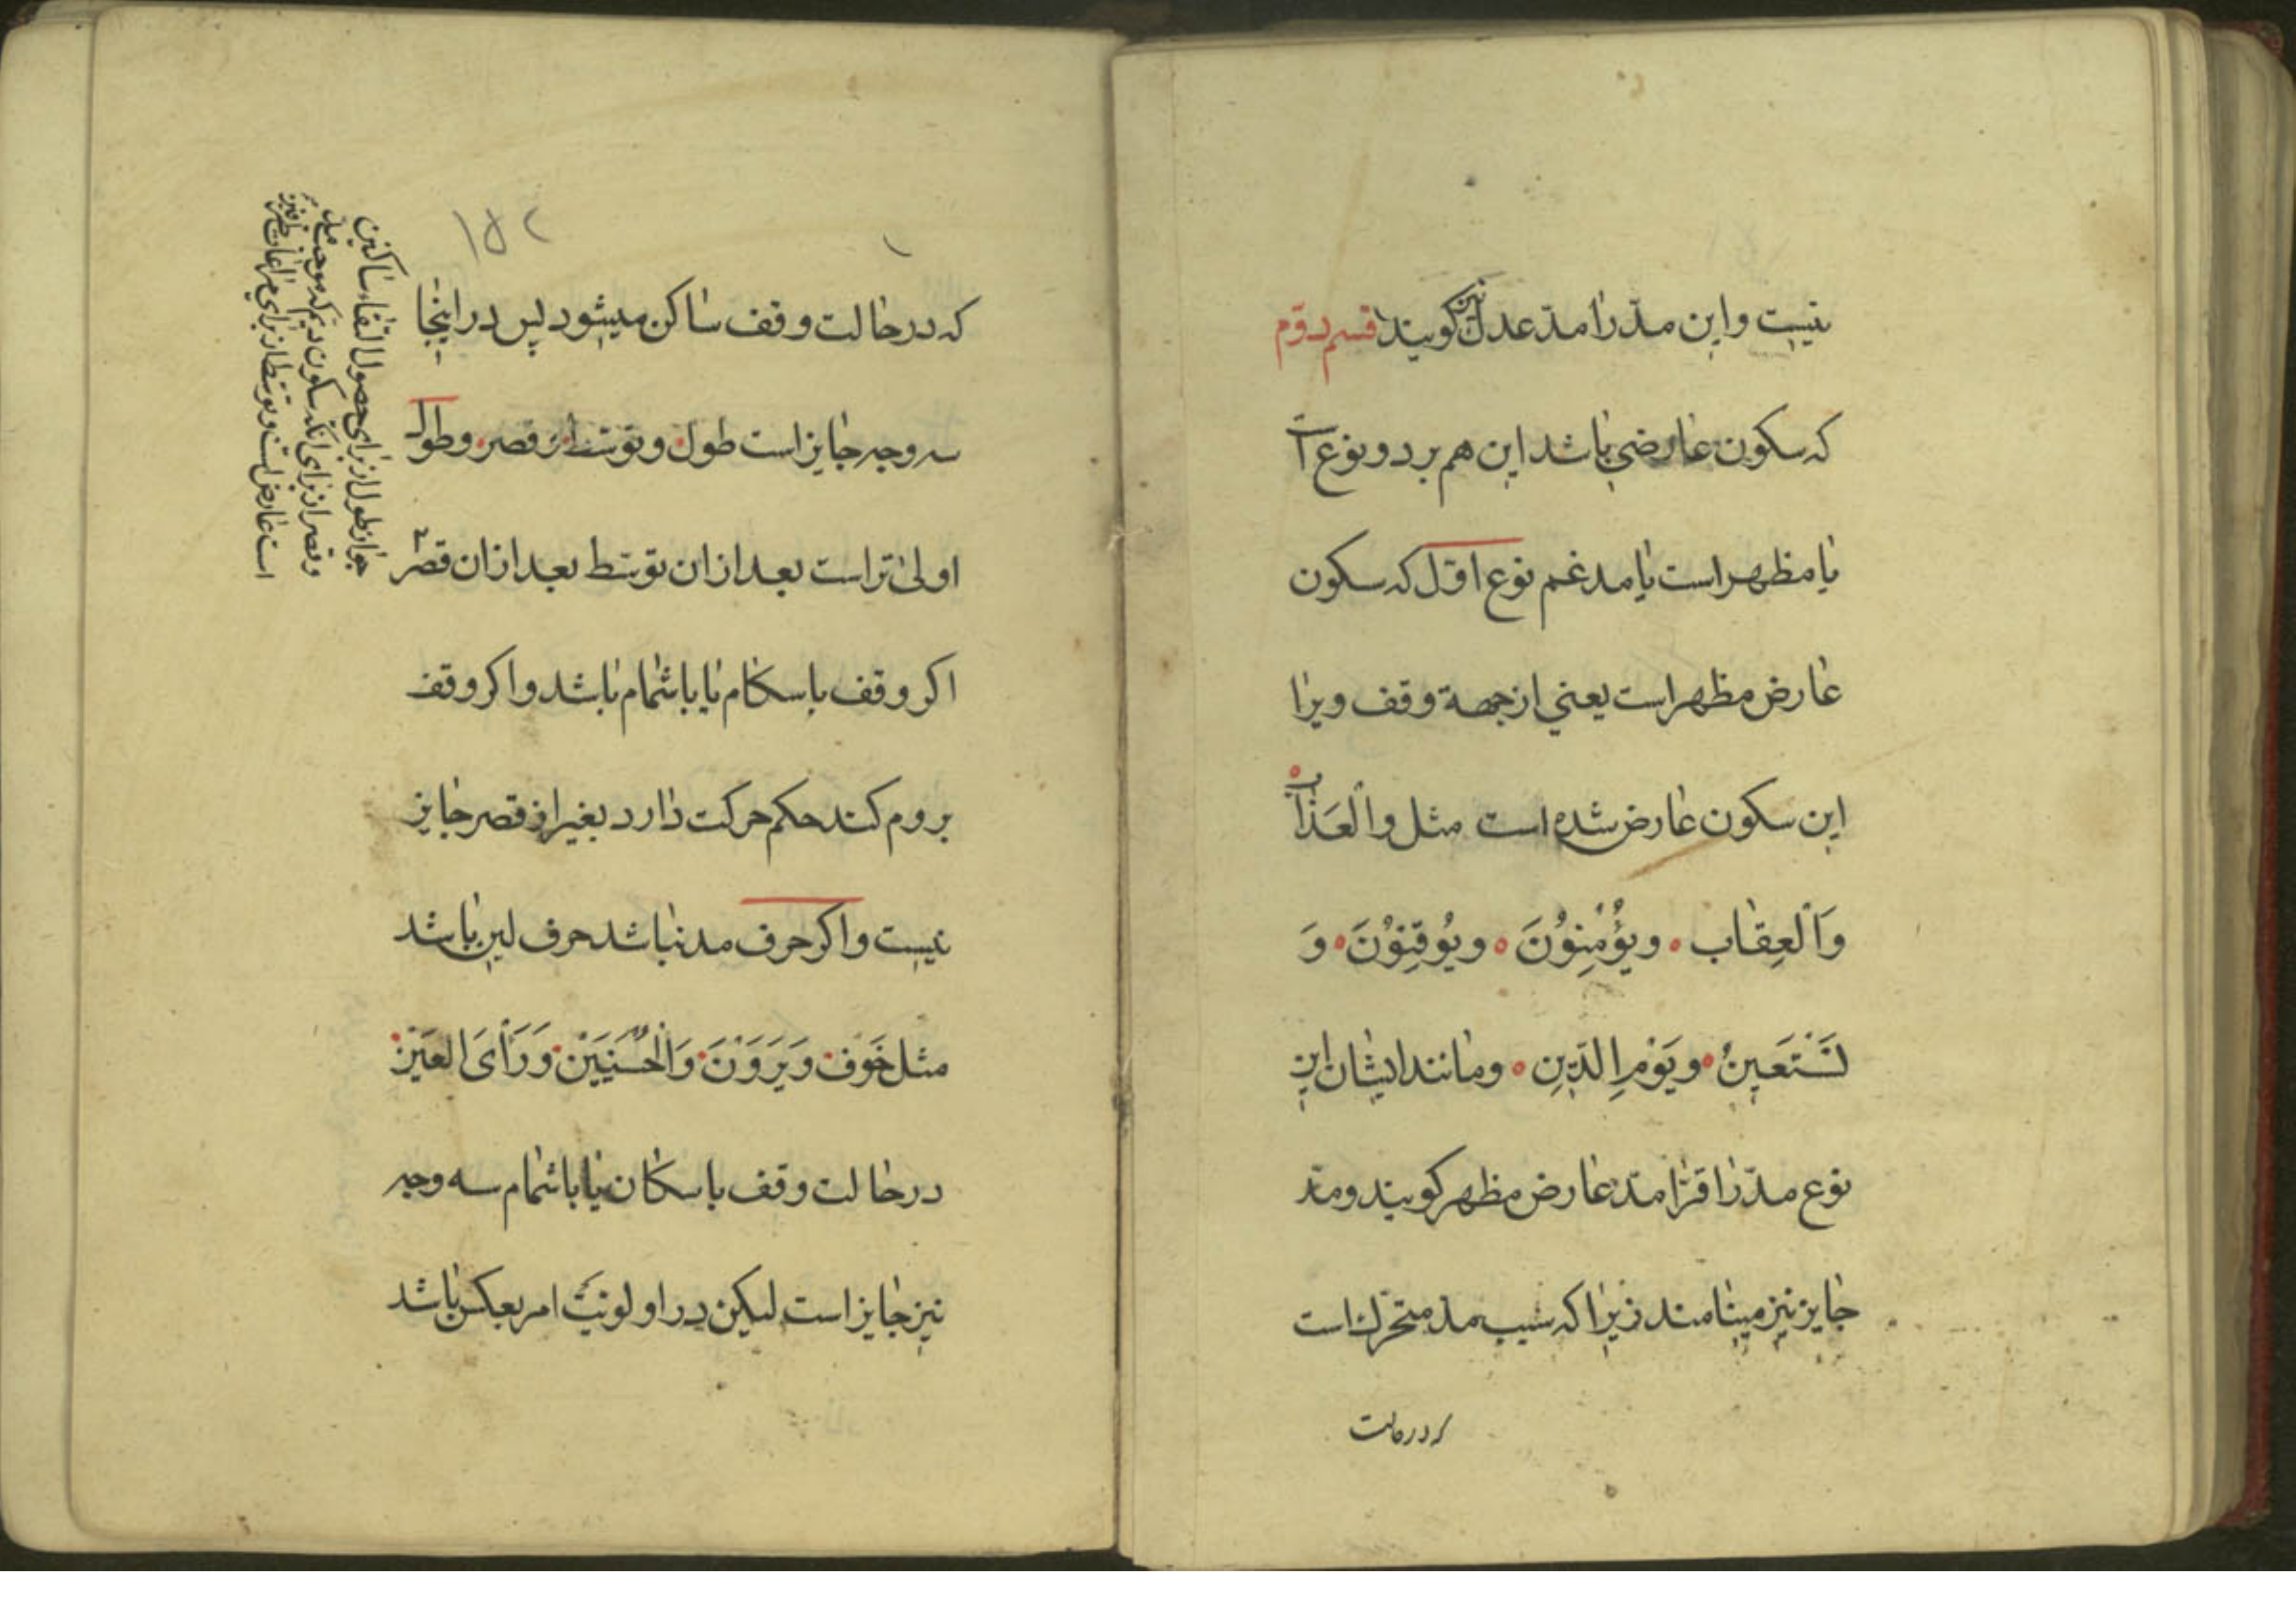 نیست و این مدّ را مدّ عدل نیز گویند قسم دوّم
که سکون عارضی باشد این هم بر دو نوع است
یا مظهر است یا مدغم نوع اوّل که سکون
عارض مظهر است یعنی از جهة وقف ویرا
این سکون عارض شده است مثل والْعَذاب
وَالْعِقاب ۰ ویُؤْمِنُوْنَ ۰ ویُوقِنُوْنَ ۰ وَ
نَسْتَعینُ ۰ ویَوْمِ الدّینِ ۰ ومانند ایشان این
نوع مدّ را قرّا مدّ عارض مظهر کویند ومدّ
جایز نیز مینامند زیرا که سبب مدّ متحرّک است
که در حالت
۱۵۲
که در حالت وقف ساکن میشود پس در اینجا
سه وجه جایز است طول ۰ وتوسّط ۰ قصر ۰ وطول
اولی تر است بعد از ان توسّط بعد از ان قصر
اکر وقف باسکام یا باشمام باشد و اکر وقف
بروم کند حکم حرکت دارد بغیر از قصر جایز
نیست و اکر حرف مد نباشد حرف لین باشد
مثل خَوْف ۰ وَیَرَوْنَ ۰ وَالْحُسْنَیَیْن ۰ وَرَأْیَ الْعَیْن
در حالت وقف باسکان یا باشمام سه وجه
نیز جایز است لیکن در اولویّت امر بعکس باشد
جواز طول از برای حصول التقاء ساکنین
وقصر از برای انکه سکون
است عارض است وتوسّط از برای مراعات طرفین